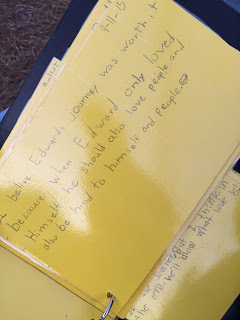 9-11-15
I belive Edwards journey was worth it
because when Edward only loved
Himself he should also love people and
also be kind to himself and people.
but I think in
the end. he'll know what love is!